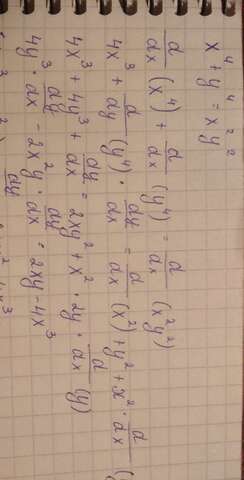 x⁴ + y⁴ = x²y²
d/dx (x⁴) + d/dx (y⁴) = d/dx (x²y²)
4x³ + d/dy (y⁴) · dy/dx = d/dx (x²) + y² + x² · d/dx (
4x³ + 4y³ + dy/dx = 2xy² + x² · 2y · d/dx (y)
4y³ · dy/dx - 2x²y · dy/dx = 2xy - 4x³